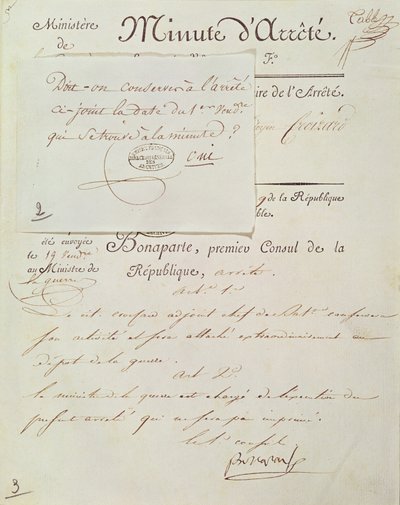 Ministère
de
Minute d'Arrêté.
F.º
Doit-on conserver à l'arrêté
ci-joint la date du 1er Vend.re
qui se trouve à la minute ?
oui
2
ire de l'Arrêté.
Croizard
9 de la République
ble.
été envoyée
le 19 Vend.re
au Ministre de
la guerre
Bonaparte, premier Consul de la
République, arrête
art. 1er
Le cit. adjoint chef de conservera
son activité et sera attaché extraordinairement au
dépôt de la guerre.
art 2e
le ministre de la guerre est chargé de l'exécution du
présent arrêté qui ne sera pas imprimé.
le 1er consul
Bonaparte
3